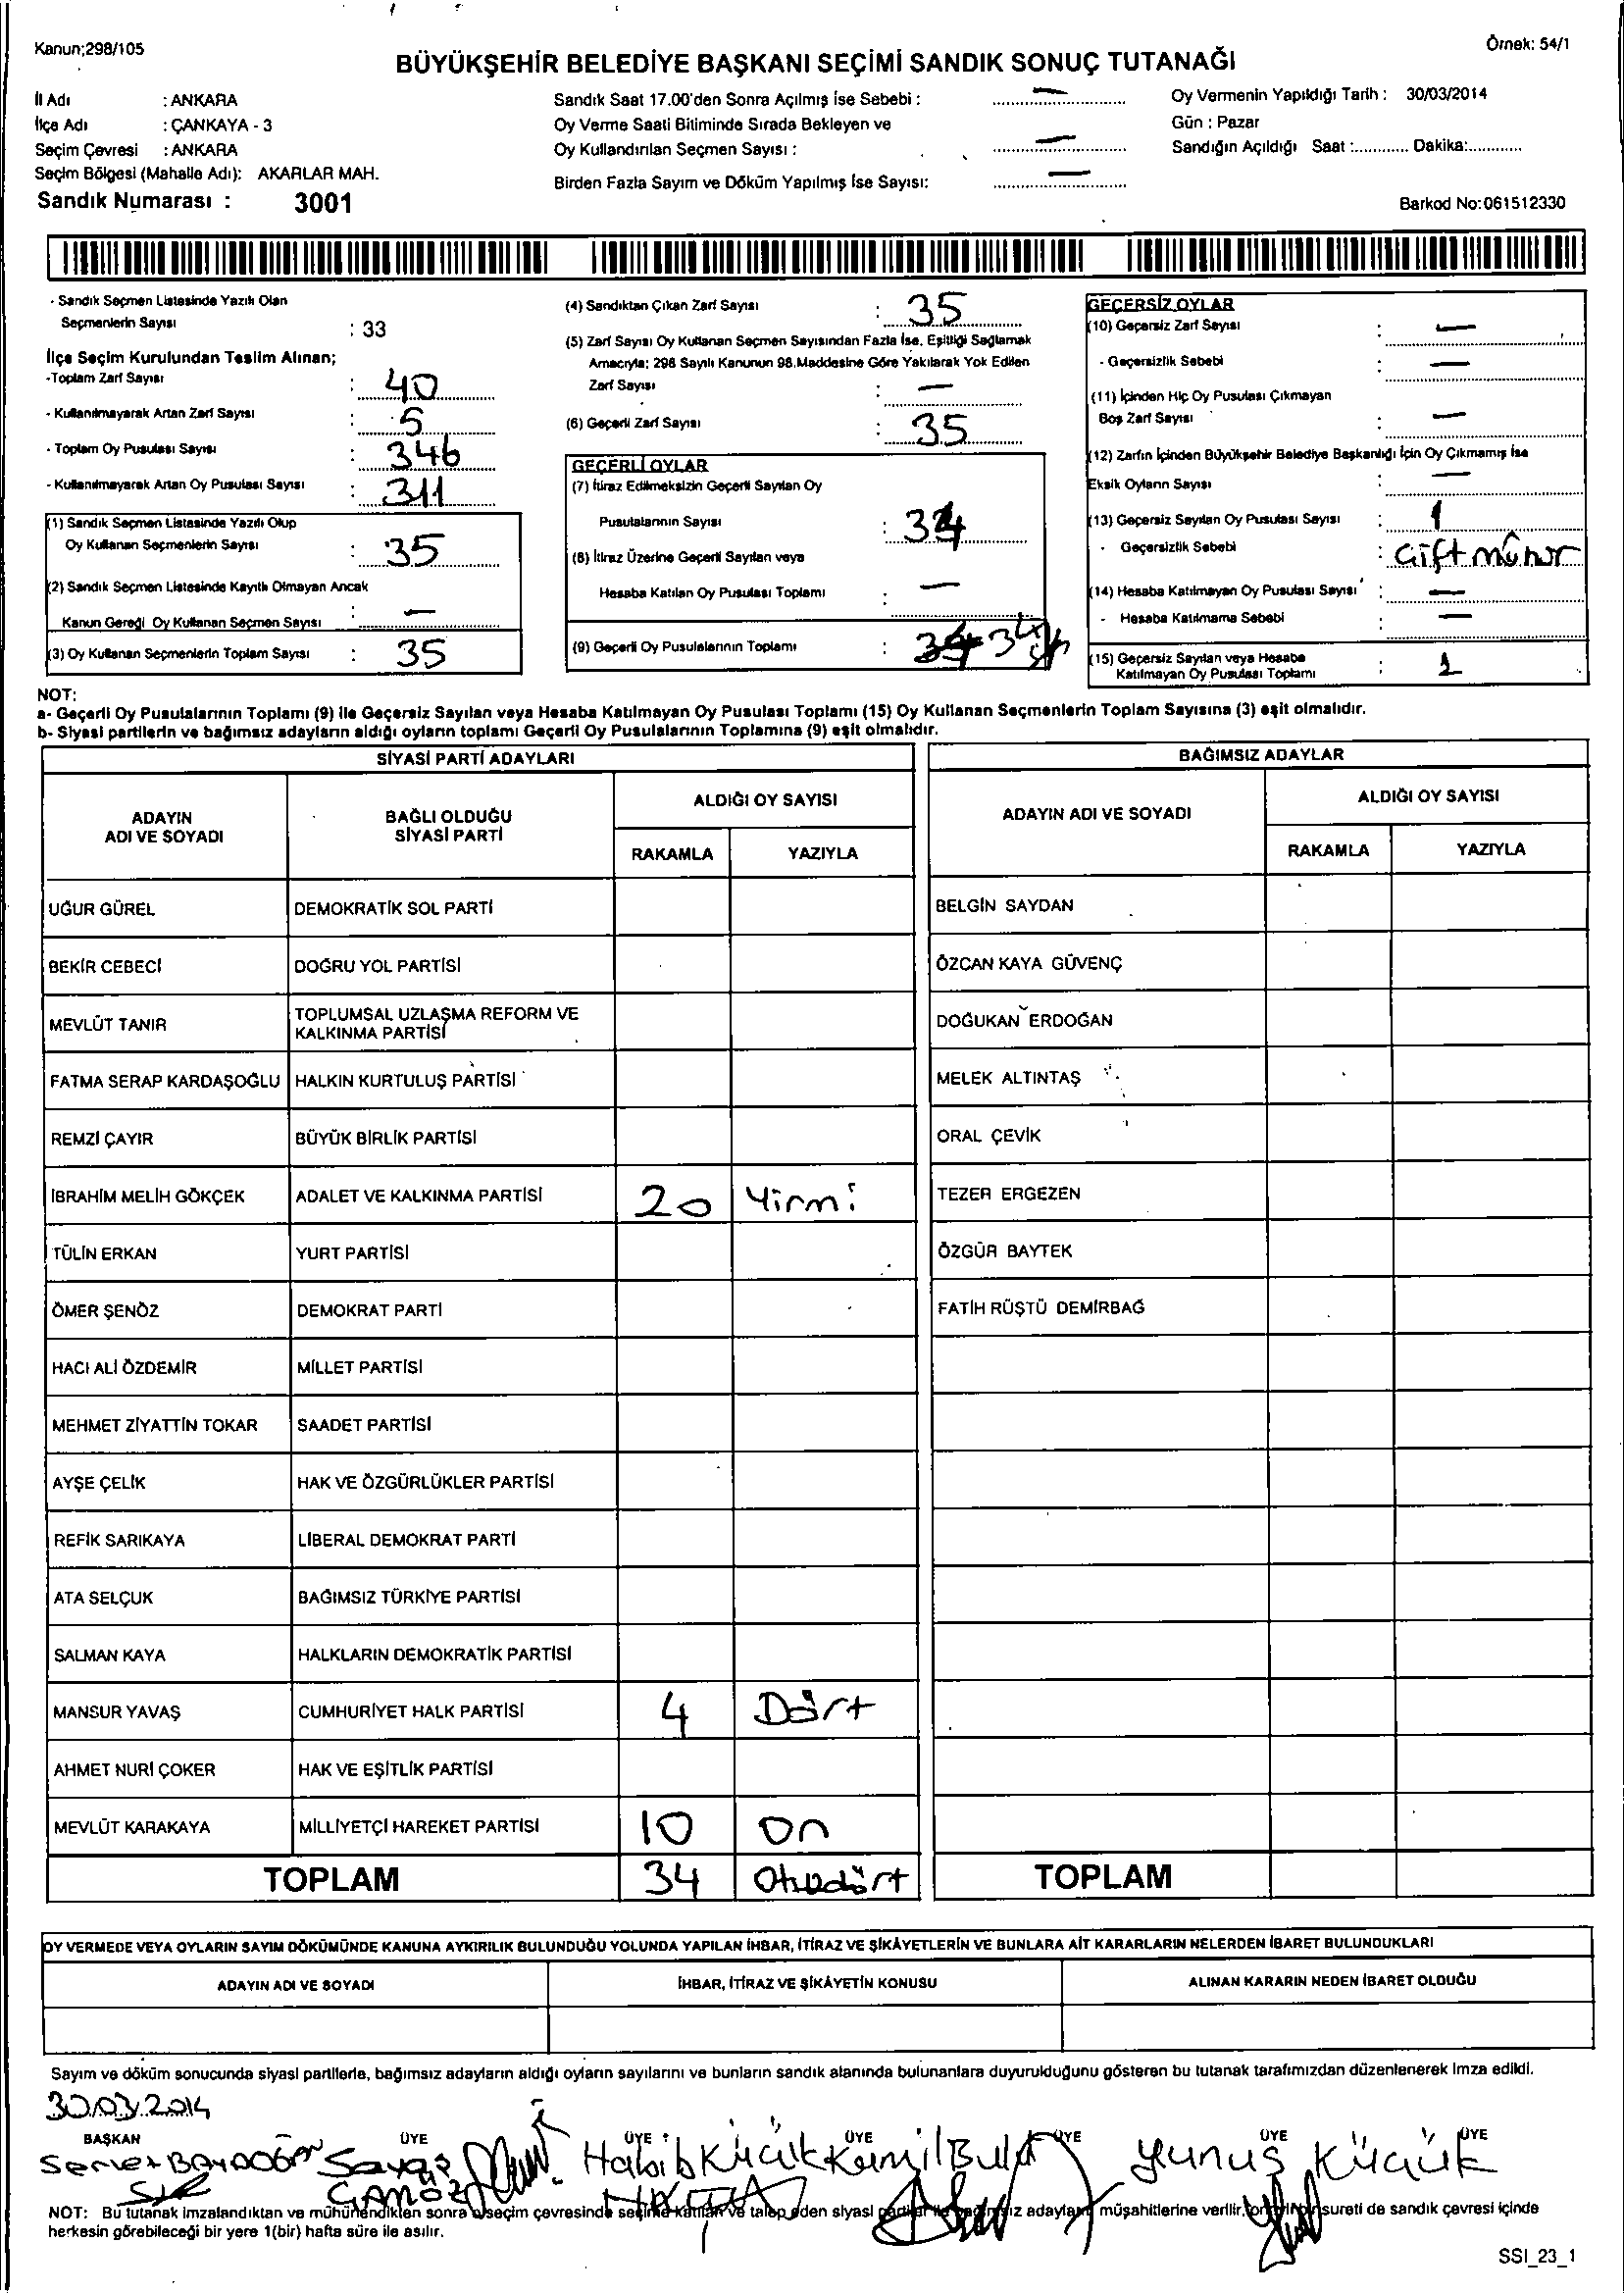 Kanun;298/105
Örnek: 54/1
BÜYÜKŞEHİR BELEDİYE BAŞKANI SEÇİMİ SANDIK SONUÇ TUTANAĞI
İl Adı : ANKARA
İlçe Adı : ÇANKAYA - 3
Seçim Çevresi : ANKARA
Seçim Bölgesi (Mahalle Adı): AKARLAR MAH.
Sandık Numarası : 3001
Sandık Saat 17.00'den Sonra Açılmış ise Sebebi : —
Oy Verme Saati Bitiminde Sırada Bekleyen ve
Oy Kullandırılan Seçmen Sayısı : —
Birden Fazla Sayım ve Döküm Yapılmış İse Sayısı: —
Oy Vermenin Yapıldığı Tarih : 30/03/2014
Gün : Pazar
Sandığın Açıldığı Saat :............ Dakika:............
Barkod No:061512330
- Sandık Seçmen Listesinde Yazılı Olan
Seçmenlerin Sayısı : 33
İlçe Seçim Kurulundan Teslim Alınan;
-Toplam Zarf Sayısı : 40
- Kullanılmayarak Artan Zarf Sayısı : 5
- Toplam Oy Pusulası Sayısı : 346
- Kullanılmayarak Artan Oy Pusulası Sayısı : 311
(1) Sandık Seçmen Listesinde Yazılı Olup
Oy Kullanan Seçmenlerin Sayısı : 35
(2) Sandık Seçmen Listesinde Kayıtlı Olmayan Ancak
Kanun Gereği Oy Kullanan Seçmen Sayısı : —
(3) Oy Kullanan Seçmenlerin Toplam Sayısı : 35
(4) Sandıktan Çıkan Zarf Sayısı : 35
(5) Zarf Sayısı Oy Kullanan Seçmen Sayısından Fazla İse, Eşitliği Sağlamak
Amacıyla; 298 Sayılı Kanunun 98.Maddesine Göre Yakılarak Yok Edilen
Zarf Sayısı : —
(6) Geçerli Zarf Sayısı : 35
GEÇERLİ OYLAR
(7) İtiraz Edilmeksizin Geçerli Sayılan Oy
Pusulalarının Sayısı : 34
(8) İtiraz Üzerine Geçerli Sayılan veya
Hesaba Katılan Oy Pusulası Toplamı : —
(9) Geçerli Oy Pusulalarının Toplamı : 34
GEÇERSİZ OYLAR
(10) Geçersiz Zarf Sayısı : —
- Geçersizlik Sebebi : —
(11) İçinden Hiç Oy Pusulası Çıkmayan
Boş Zarf Sayısı : —
(12) Zarfın İçinden Büyükşehir Belediye Başkanlığı İçin Oy Çıkmamış İse
Eksik Oyların Sayısı : —
(13) Geçersiz Sayılan Oy Pusulası Sayısı : 1
- Geçersizlik Sebebi : Çift mühür
(14) Hesaba Katılmayan Oy Pusulası Sayısı : —
- Hesaba Katılmama Sebebi : —
(15) Geçersiz Sayılan veya Hesaba
Katılmayan Oy Pusulası Toplamı : 1
NOT:
a- Geçerli Oy Pusulalarının Toplamı (9) ile Geçersiz Sayılan veya Hesaba Katılmayan Oy Pusulası Toplamı (15) Oy Kullanan Seçmenlerin Toplam Sayısına (3) eşit olmalıdır.
b- Siyasi partilerin ve bağımsız adayların aldığı oyların toplamı Geçerli Oy Pusulalarının Toplamına (9) eşit olmalıdır.
SİYASİ PARTİ ADAYLARI
ADAYIN
ADI VE SOYADI
BAĞLI OLDUĞU
SİYASİ PARTİ
ALDIĞI OY SAYISI
RAKAMLA YAZIYLA
UĞUR GÜREL DEMOKRATİK SOL PARTİ
BEKİR CEBECİ DOĞRU YOL PARTİSİ
MEVLÜT TANIR TOPLUMSAL UZLAŞMA REFORM VE
KALKINMA PARTİSİ
FATMA SERAP KARDAŞOĞLU HALKIN KURTULUŞ PARTİSİ
REMZİ ÇAYIR BÜYÜK BİRLİK PARTİSİ
İBRAHİM MELİH GÖKÇEK ADALET VE KALKINMA PARTİSİ 20 Yirmi
TÜLİN ERKAN YURT PARTİSİ
ÖMER ŞENÖZ DEMOKRAT PARTİ
HACI ALİ ÖZDEMİR MİLLET PARTİSİ
MEHMET ZİYATTİN TOKAR SAADET PARTİSİ
AYŞE ÇELİK HAK VE ÖZGÜRLÜKLER PARTİSİ
REFİK SARIKAYA LİBERAL DEMOKRAT PARTİ
ATA SELÇUK BAĞIMSIZ TÜRKİYE PARTİSİ
SALMAN KAYA HALKLARIN DEMOKRATİK PARTİSİ
MANSUR YAVAŞ CUMHURİYET HALK PARTİSİ 4 Dört
AHMET NURİ ÇOKER HAK VE EŞİTLİK PARTİSİ
MEVLÜT KARAKAYA MİLLİYETÇİ HAREKET PARTİSİ 10 On
TOPLAM 34 Otuzdört
BAĞIMSIZ ADAYLAR
ADAYIN ADI VE SOYADI
ALDIĞI OY SAYISI
RAKAMLA YAZIYLA
BELGİN SAYDAN
ÖZCAN KAYA GÜVENÇ
DOĞUKAN ERDOĞAN
MELEK ALTINTAŞ
ORAL ÇEVİK
TEZER ERGEZEN
ÖZGÜR BAYTEK
FATİH RÜŞTÜ DEMİRBAĞ
TOPLAM
OY VERMEDE VEYA OYLARIN SAYIM DÖKÜMÜNDE KANUNA AYKIRILIK BULUNDUĞU YOLUNDA YAPILAN İHBAR, İTİRAZ VE ŞİKÂYETLERİN VE BUNLARA AİT KARARLARIN NELERDEN İBARET BULUNDUKLARI
ADAYIN ADI VE SOYADI
İHBAR, İTİRAZ VE ŞİKÂYETİN KONUSU
ALINAN KARARIN NEDEN İBARET OLDUĞU
Sayım ve döküm sonucunda siyasi partilerle, bağımsız adayların aldığı oyların sayılarını ve bunların sandık alanında bulunanlara duyurulduğunu gösteren bu tutanak tarafımızdan düzenlenerek imza edildi.
30.03.2014
BAŞKAN ÜYE ÜYE ÜYE ÜYE ÜYE ÜYE
Savaş Habib Küçük Kamil Yunus Küçük
NOT: Bu tutanak imzalandıktan ve mühürlendikten sonra seçim çevresinde seçime katılan ve talep eden siyasi partiler ile bağımsız adayların müşahitlerine verilir. sureti de sandık çevresi içinde
herkesin görebileceği bir yere 1(bir) hafta süre ile asılır.
SSI_23_1